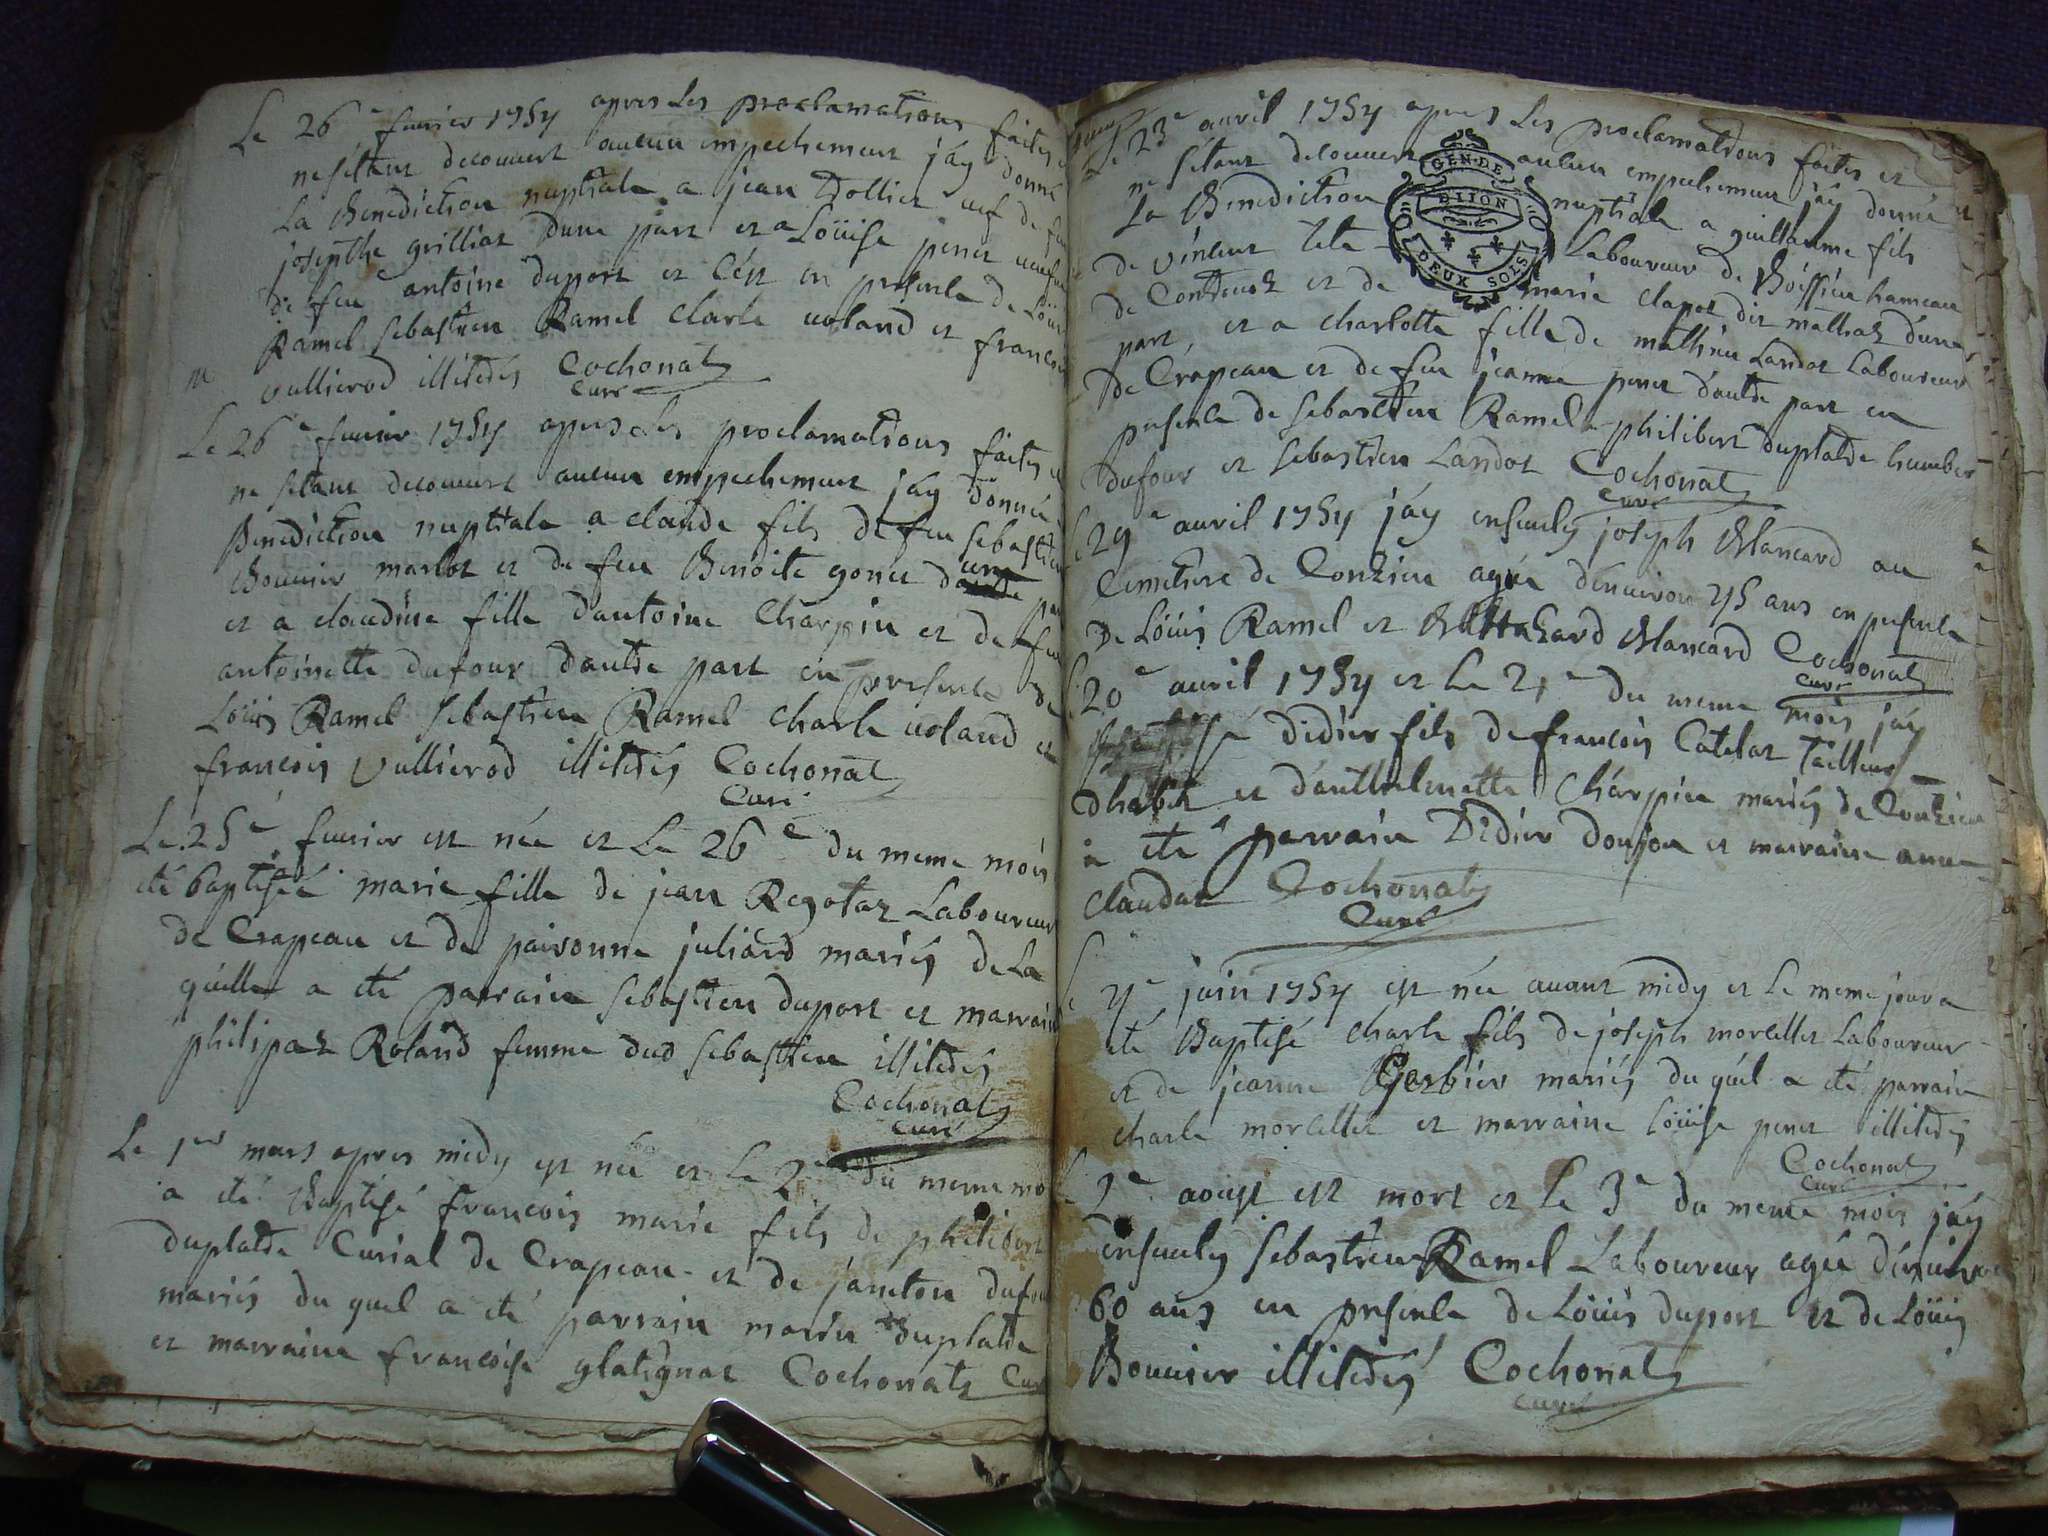 Le 26e feurier 1754 apres Les proclamations faites
ne sétant decouvert aucun empechement jáy donné
La Benediction nuptiale a jean Dollier uef de
josepthe grilliat dune part et a Loüise penet
de feu antoine duport et cést en presence de
Ramel sebastien Ramel Charle uoland et francois
vullierod illiterés Cochonat
Curé
Le 26e feurier 1754 apres Les proclamations faites
ne sétant decouvert aucun empechement jáy donné
Benediction nuptiale a claude fils de feu sebastien
Bouuier marlot et de feu Benoite gonet
une
et a claudine fille dantoine Charpin et de feu
antoinette dufour dautre part en presence de
Loüis Ramel sebastien Ramel charle uoland et
francois vullierod illiterés Cochonat
Curé
Le 25e feurier est née et Le 26e du meme mois
été baptisée marie fille de jean Regotaz Laboureur
de Crapeau et de juliard mariés de La
quelle a été parrain sebastien duport et marraine
philipaz Roland femme dud sebastien illiterés
Cochonat
Curé
Le 1er mars apres midy est né et Le 2e du meme
a été Baptisé francois marie fils de philibert
duplatre Curial de Crapeau et de janeton
mariés du quel a été parrain marin duplatre
et marraine francoise glatignat Cochonat Curé
23e auril 1754 apres Les proclamations faites et
ne sétant decouvert aucun empechement jáy donné
La Benediction nuptiale a guillaume fils
de vincent Laboureur de Boissieu hameau
de et de marie clapot dit dune
part, et a charlotte fille de mathieu Landot Laboureur
de Crapeau et de feu jeanne penet dautre part en
presence de sebastien Ramel philibert duplatre
dufour et sebastien Landot Cochonat
Curé
GEN. DE
DIJON
DEUX SOLS
29e auril 1754 jáy enseuely joseph Mancard au
Cimetiere de Conzieu agée dénuiron 45 ans en presence
de Loüis Ramel et Mancard Cochonat
Curé
20e auril 1754 et Le 21e du meme mois jáy
didier fils de francois Catelat Tailleur
dhabit et danthelmette Charpin mariés de Conzieu
a été parrain Didier donjon et marraine anne
claudat Cochonat
Curé
4e juin 1754 est né auant midy et Le meme jour a
été Baptisé charle fils de joseph morcellet Laboureur
et de jeanne Gerbier mariés du quel a été parrain
charle morcellet et marraine Loüise penet illiterés
Cochonat
Curé
2e aoust est mort et Le 3e du meme mois jáy
enseuely sebastien Ramel Laboureur agée dénuiron
60 ans en presence de Loüis duport et de Loüis
Bouuier illiterés Cochonat
Curé